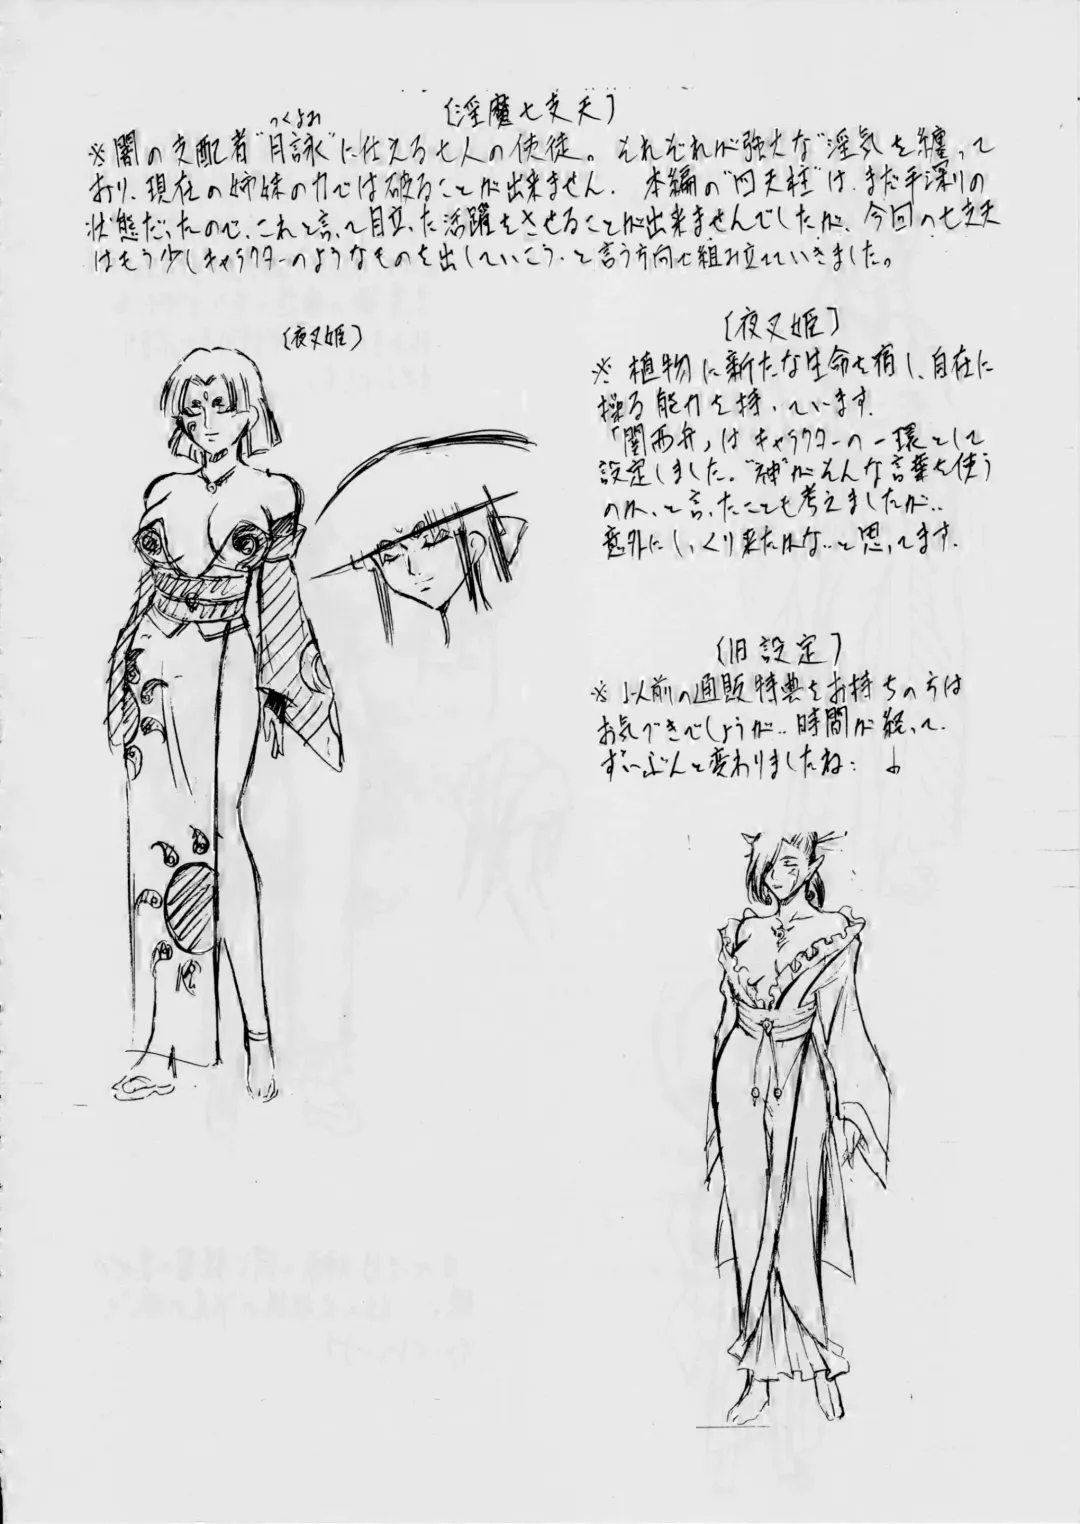 〔淫魔七支天〕
つくよみ
※闇の支配者"月詠"に仕える七人の使徒。それぞれが強大な"淫気"を纏って
おり、現在の姉妹の力では破ることが出来ません。本編の"四天柱"は、まだ手深りの
状態だったので、これと言って目立った活躍をさせることが出来ませんでしたが、今回の七支天
はもう少しキャラクターのようなものを出していこう、と言う方向で組み立てていきました。
〔夜叉姫〕
〔夜叉姫〕
※植物に新たな生命を宿し、自在に
操る能力を持っています。
「関西弁」はキャラクターの一環として
設定しました。"神"がそんな言葉を使う
のか、と言ったことも考えましたが‥
意外にしっくり来たかな‥と思ってます。
〔旧設定〕
※以前の通販特典をお持ちの方は
お気づきでしょうが‥時間が経って、
ずいぶんと変わりましたね: